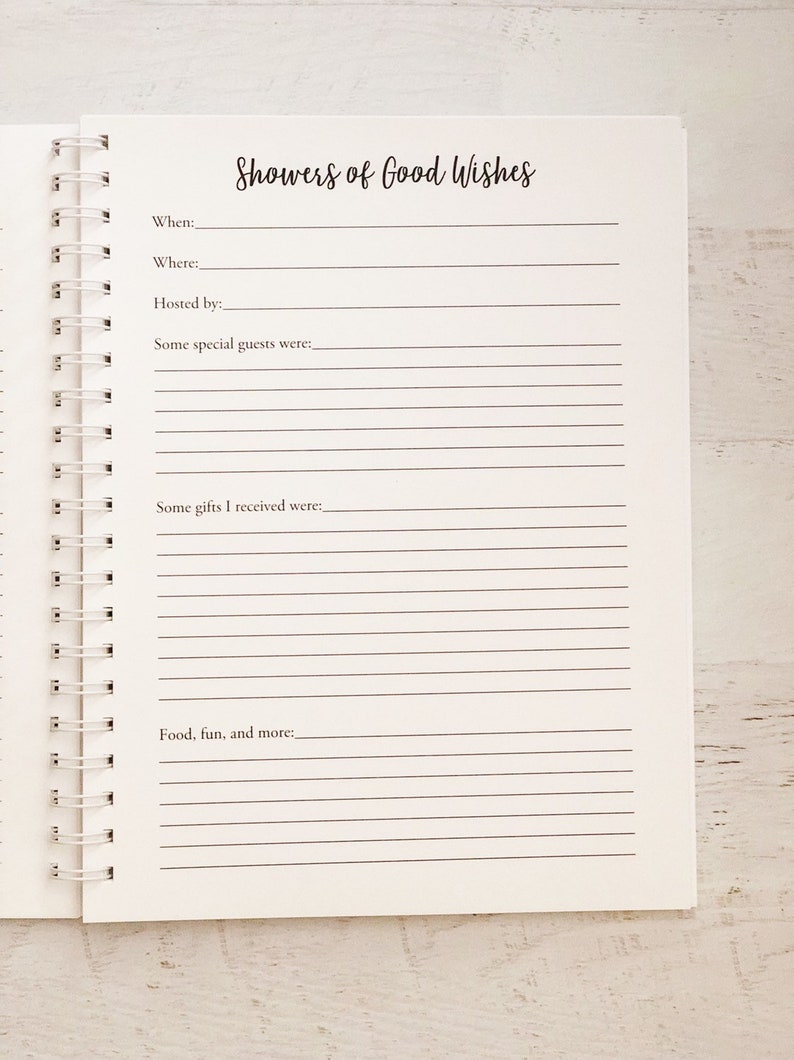 Showers of Good Wishes
When:
Where:
Hosted by:
Some special guests were:
Some gifts I received were:
Food, fun, and more: